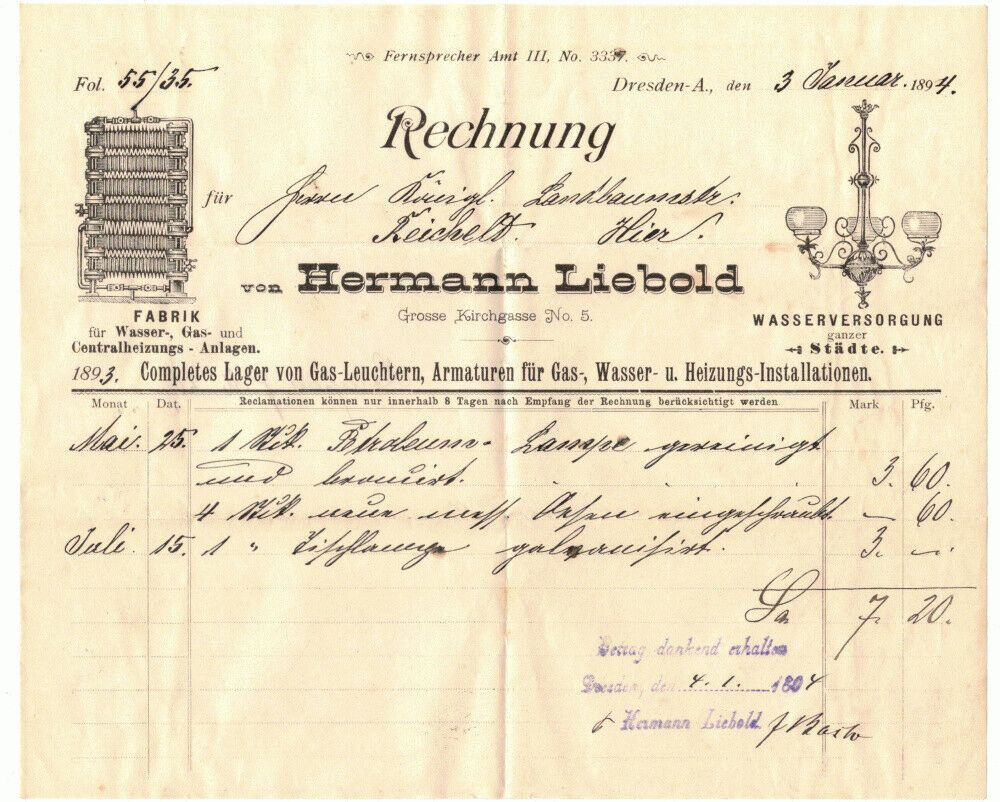 Fernsprecher Amt III, No. 3337.
Fol. 55/35.
Dresden-A., den 3 Januar. 1894.
Rechnung
für Herrn Königl. Landbaumstr.
Reichelt. Hier.
von Hermann Liebold
Grosse Kirchgasse No. 5.
FABRIK
für Wasser-, Gas- und
Centralheizungs - Anlagen.
WASSERVERSORGUNG
ganzer
Städte.
1893. Completes Lager von Gas-Leuchtern, Armaturen für Gas-, Wasser- u. Heizungs-Installationen.
Monat Dat. Reclamationen können nur innerhalb 8 Tagen nach Empfang der Rechnung berücksichtigt werden Mark Pfg.
Mai. 25. 1 Stck. Petroleum- Lampe gereinigt
und broncirt. 3. 60.
4 Stck. neue mess. Oesen eingeschraubt. — 60.
Juli. 15. 1 " Tischlampe galvanisirt. 3. —.
Sa. 7. 20.
Betrag dankend erhalten
Dresden, den 4. 1. 1894
Hermann Liebold